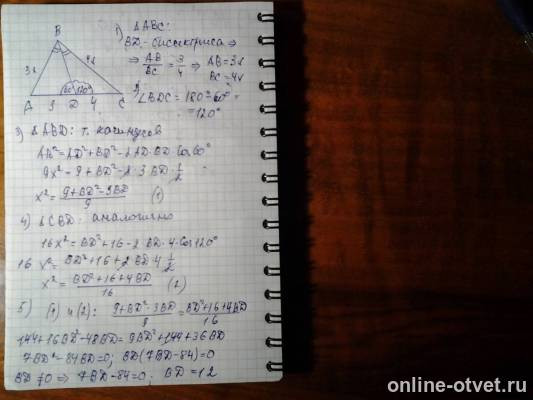 B
3x
4x
60° 120°
A 3 D 4 C
1) ΔABC:
BD - биссектриса ⇒
⇒ AB/BC = 3/4 ⇒ AB = 3x
BC = 4x
2) ∠BDC = 180° - 60° =
= 120°
3) ΔABD: т. косинусов
AB² = AD² + BD² - 2AD·BD·Cos60°
9x² = 9 + BD² - 2·3BD·1/2
x² = (9 + BD² - 3BD)/9 (1)
4) ΔCBD: аналогично
16x² = BD² + 16 - 2·BD·4·Cos120°
16x² = BD² + 16 + 2·BD·4·1/2
x² = (BD² + 16 + 4BD)/16 (2)
5) (1) и (2): (9 + BD² - 3BD)/9 = (BD² + 16 + 4BD)/16
144 + 16BD² - 48BD = 9BD² + 144 + 36BD
7BD² - 84BD = 0; BD(7BD - 84) = 0
BD ≠ 0 ⇒ 7BD - 84 = 0; BD = 12
online-otvet.ru